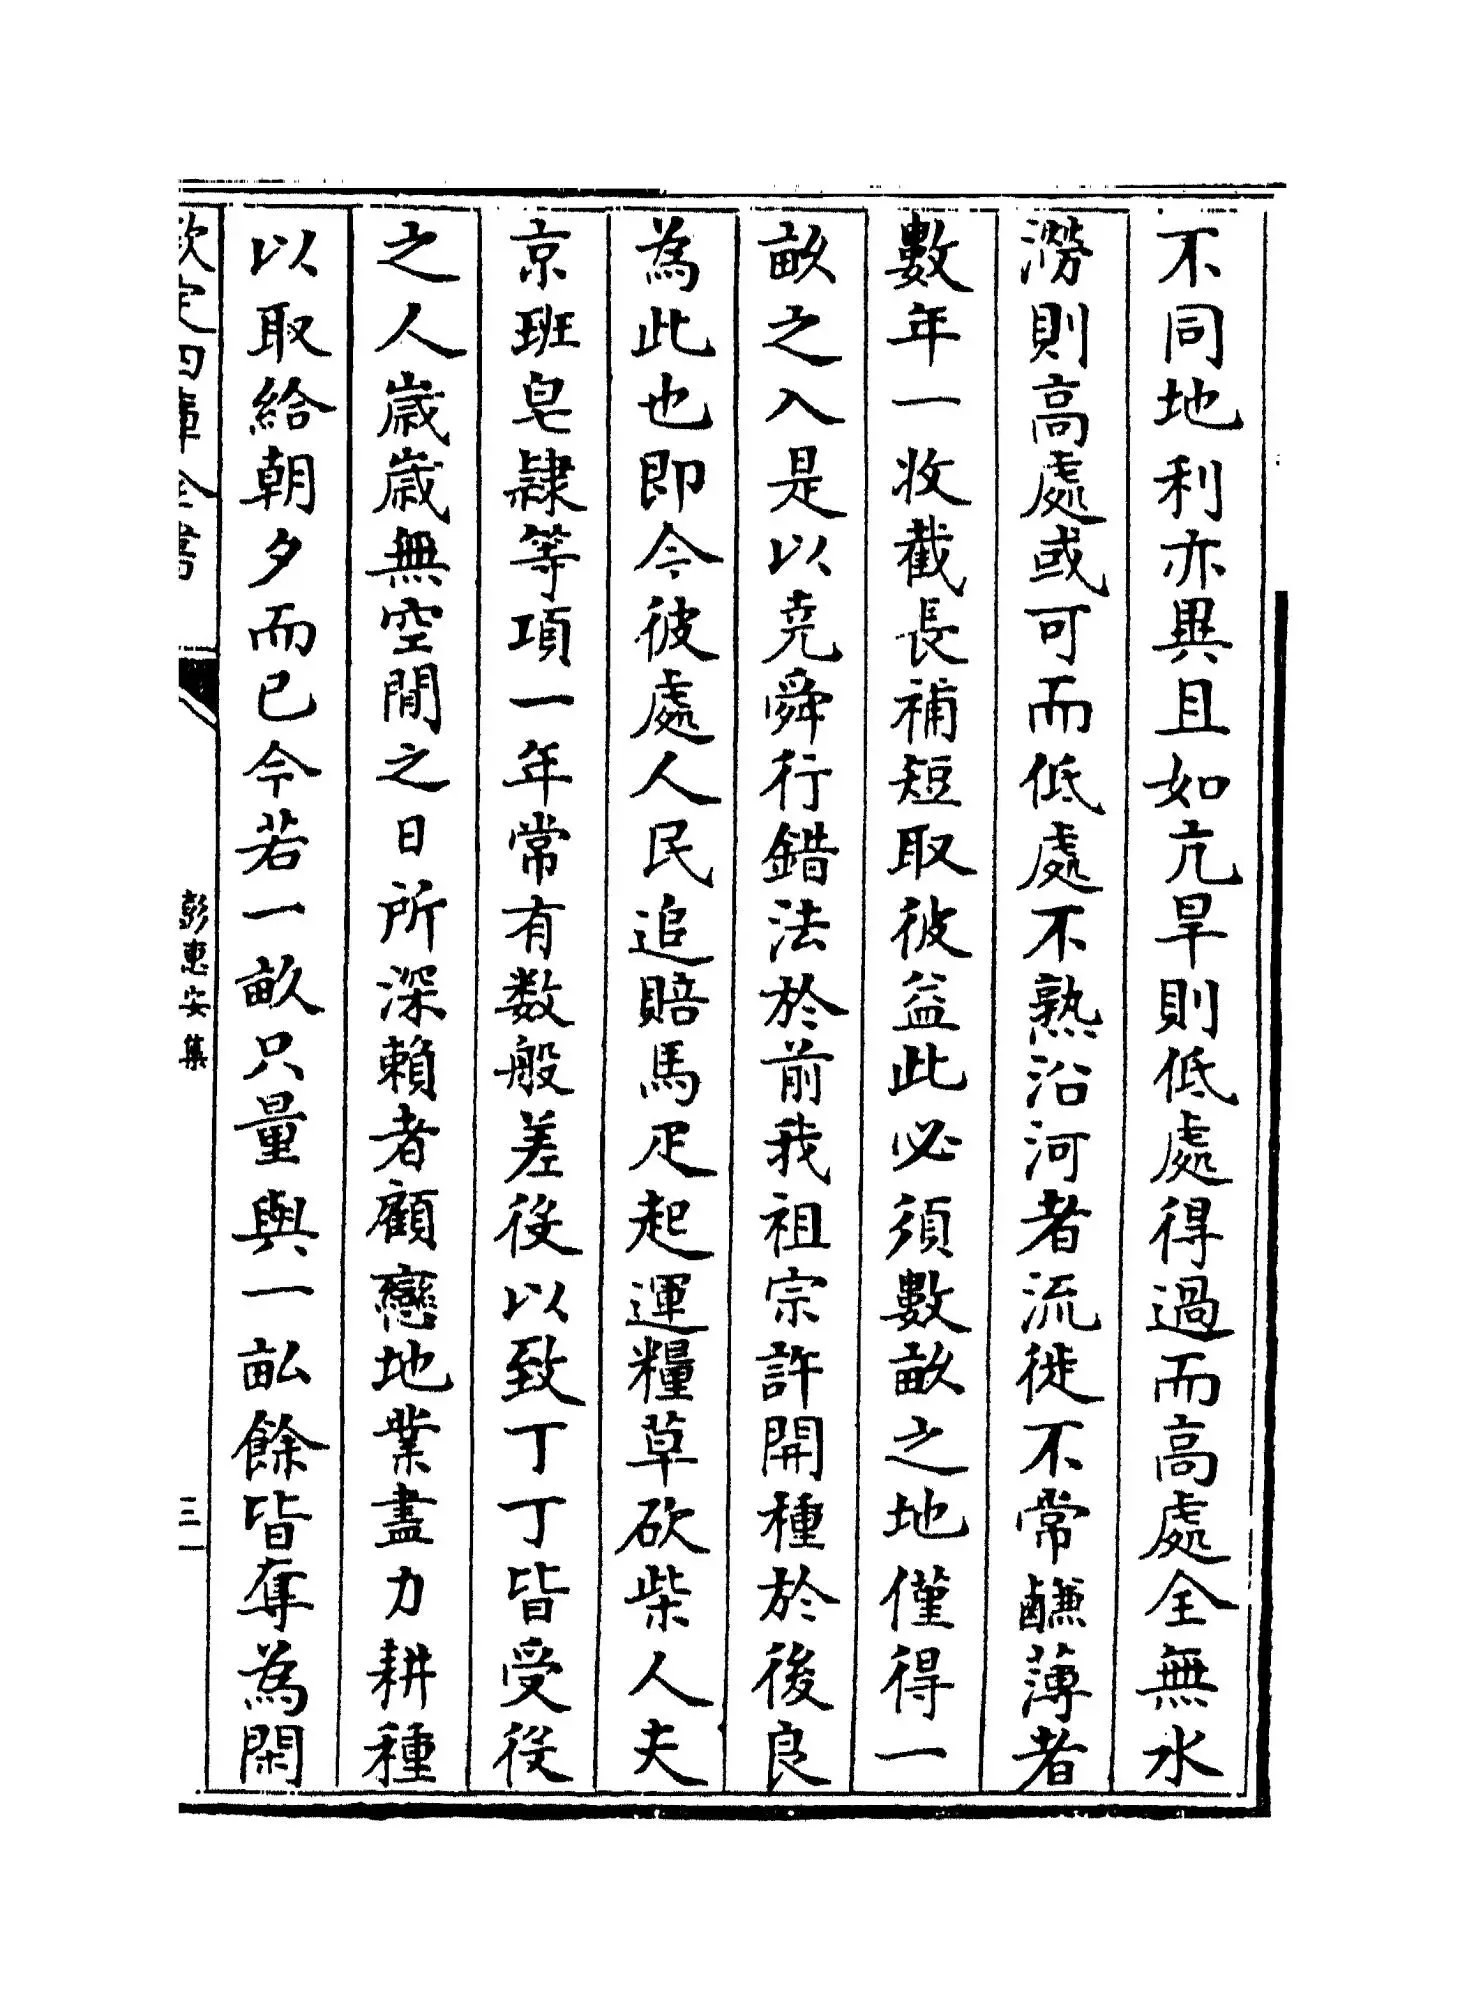 不同地利亦異且如亢旱則低處得過而高處全無水
澇則高處或可而低處不熟沿河者流徙不常鹻薄者
數年一收截長補短取彼益此必須數畝之地僅得一
畝之入是以堯舜行錯法於前我祖宗許開種於後良
為此也即今彼處人民追賠馬疋起運糧草砍柴人夫
京班皂隸等項一年常有数般差役以致丁丁皆受役
之人歲歲無空閒之日所深賴者顧戀地業盡力耕種
以取給朝夕而已今若一畝只量與一畆餘皆奪為閑
欽定四庫全書
彭惠安集
三一